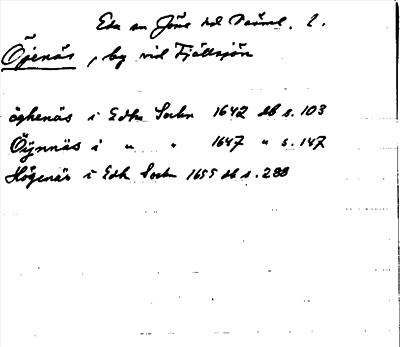 Eda sn Jösse hd Värml. 2.
Öjenäs, by vid Fjällsjön
öghenäs i Edh Sockn 1642 db s. 103
Öÿnnäs i " " 1647 " s. 147
Högenäs i Edh Sockn 1655 db s. 288